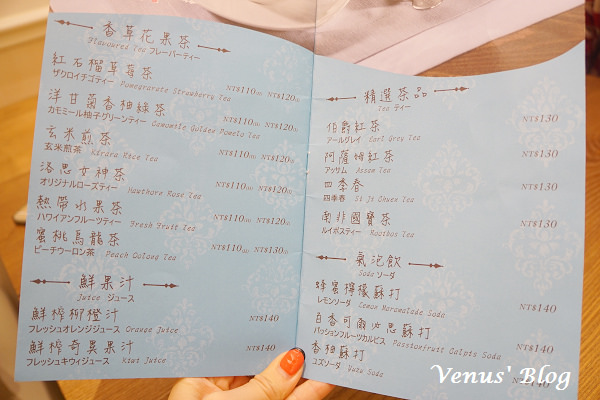 香草花果茶
Flavoured Tea フレーバーティー
紅石榴草莓茶
ザクロイチゴティー Pomegranate Strawberry Tea NT$110(M) NT$120(L)
洋甘菊香柚綠茶
カモミール柚子グリーンティー Camomile Golden Pomelo Tea NT$110(M) NT$120(L)
玄米煎茶
玄米煎茶 Karara Rice Tea NT$110(M) NT$120(L)
洛思女神茶
オリジナルローズティー Hawthorn Rose Tea NT$110(M) NT$120(L)
熱帶水果茶
ハワイアンフルーツティー Fresh Fruit Tea NT$110(M) NT$120(L)
蜜桃烏龍茶
ピーチウーロン茶 Peach Oolong Tea NT$110(M) NT$130(L)
鮮果汁
Juice ジュース
鮮榨柳橙汁
フレッシュオレンジジュース Orange Juice NT$140
鮮榨奇異果汁
フレッシュキウィジュース Kiwi Juice NT$140
精選茶品
Tea ティー
伯爵紅茶 NT$130
アールグレイ Earl Grey Tea
阿薩姆紅茶 NT$130
アッサム Assam Tea
四季春 NT$130
四季春 Si Ji Chuen Tea
南非國寶茶 NT$130
ルイボスティー Rooibos Tea
氣泡飲
Soda ソーダ
蜂蜜檸檬蘇打
レモンソーダ Lemon Marmalade Soda NT$140
百香可爾必思蘇打
パッションフルーツカルピス Passionfruit Calpis Soda NT$140
香柚蘇打
ユズソーダ Yuzu Soda NT$140
Venus' Blog